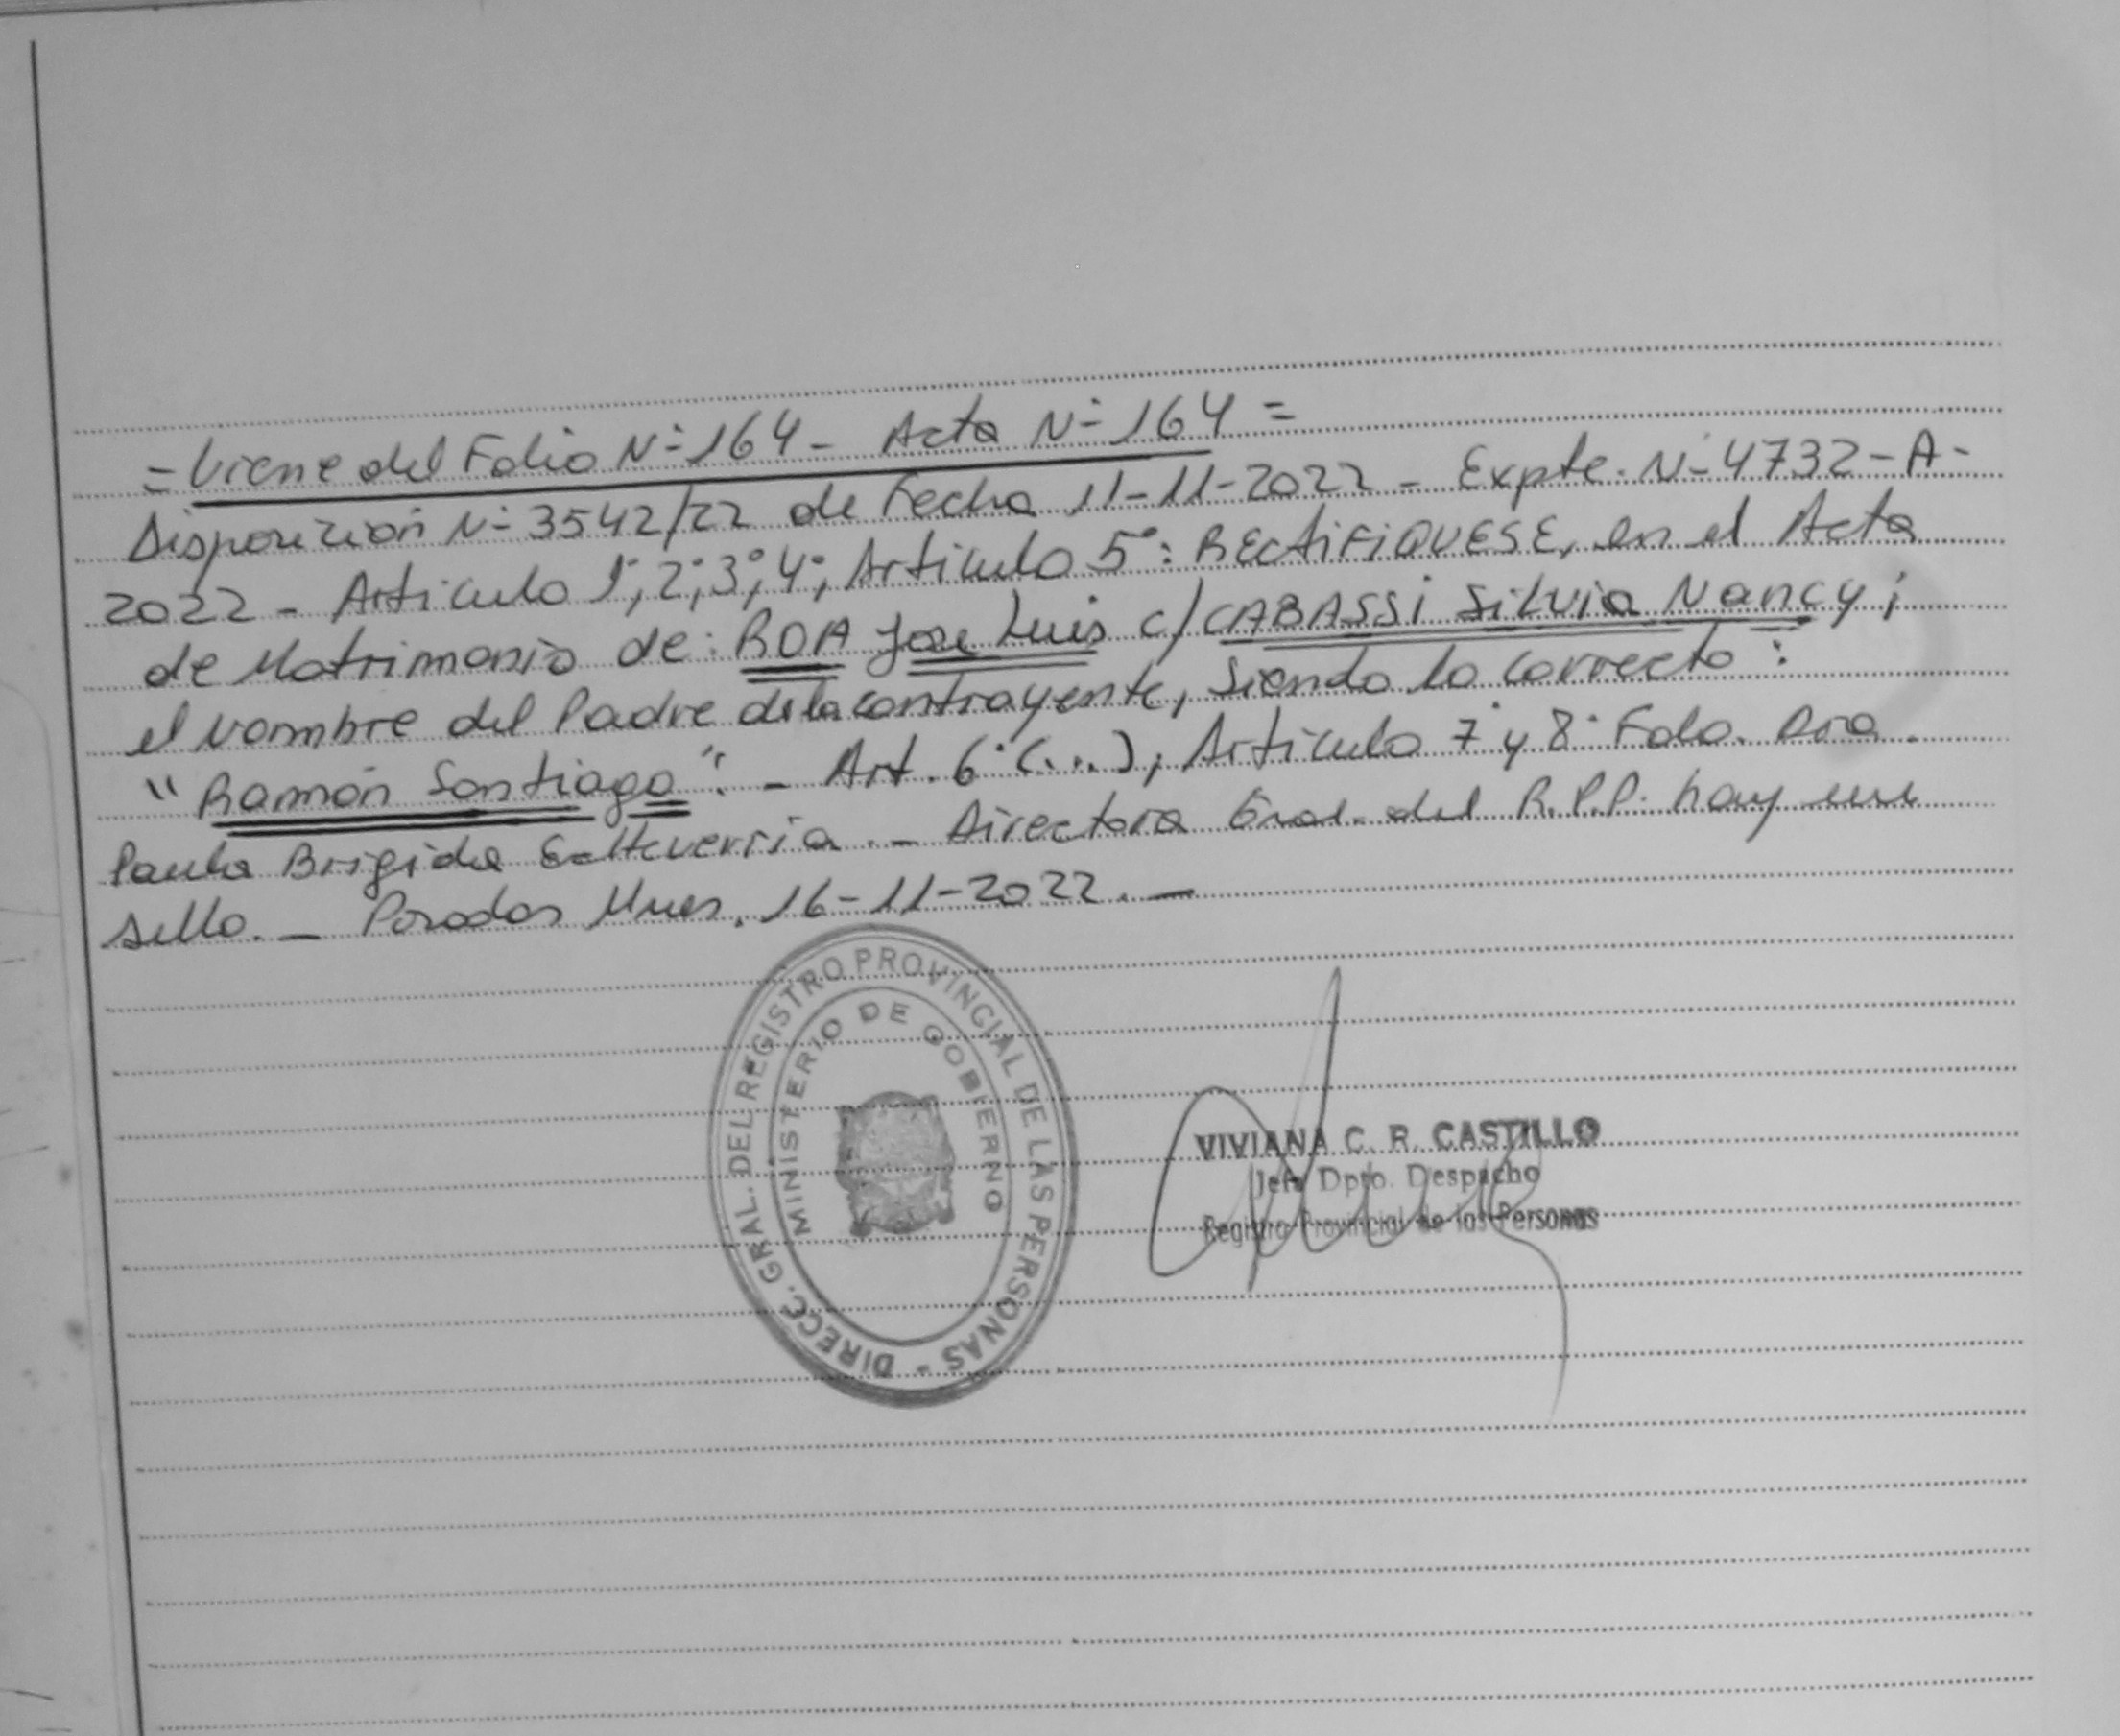 = Viene del Folio N° 164 - Acta N° 164 =
Disposición N° 3542/22 de Fecha 11-11-2022 - Expte. N° 4732-A-
2022 - Articulo 1°, 2°, 3°, 4°, Articulo 5°: RECTIFIQUESE, en el Acta
de Matrimonio de: ROA Jose Luis c/ CABASSI Silvia Nancy;
el nombre del Padre de la contrayente, siendo lo correcto:
"Ramón Santiago". - Art. 6° (...), Articulo 7° y 8° Fdo. Dra.
Paula Brigida Echeverria. - Directora Gral. del R.P.P. hay un
sello. - Posadas Mnes, 16-11-2022. -
DIRECC. GRAL. DEL REGISTRO PROVINCIAL DE LAS PERSONAS -
MINISTERIO DE GOBIERNO
VIVIANA C. R. CASTILLO
Jefa Dpto. Despacho
Registro Provincial de las Personas